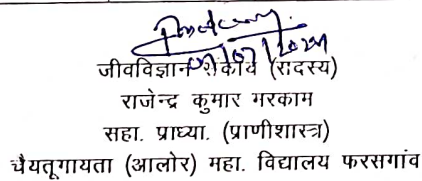 जीवविज्ञान संकाय (सदस्य)
राजेन्द्र कुमार मरकाम
सहा. प्राध्या. (प्राणीशास्त्र)
चैयतूगायता (आलोर) महा. विद्यालय फरसगांव